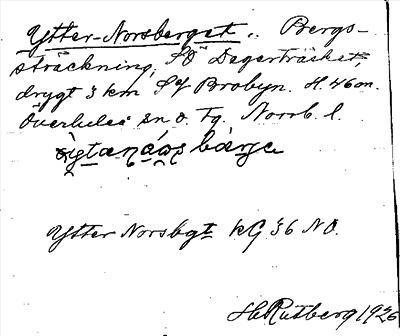 Ytter-Norsberget. Bergs-
sträckning, SO Degerträsket,
drygt 3 km SV Brobyn. H. 46 m.
Överluleå sn o. tg. Norrb. l.
Ytter Norsbgt kG 36 NO.
H. Rutberg 1926